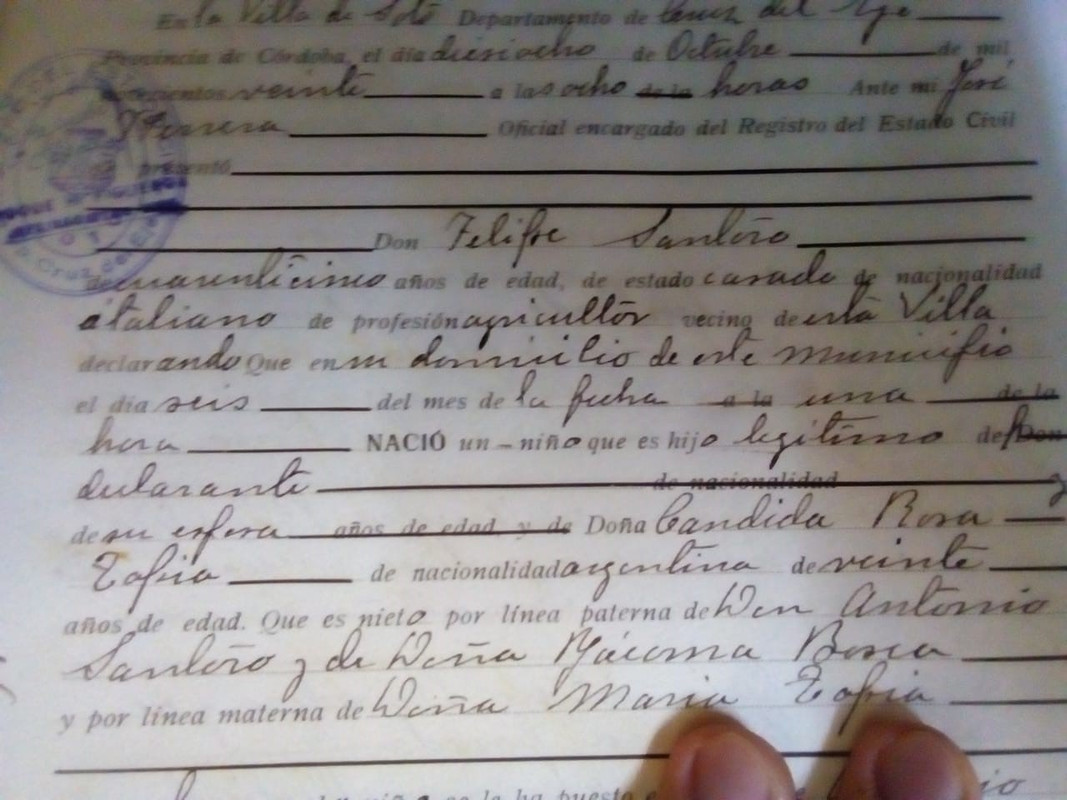 En la Villa de Soto Departamento de Cruz del Eje
Provincia de Córdoba, el día diesiocho de Octubre de mil
veinte a las ocho de la horas Ante mi José
Herrera Oficial encargado del Registro del Estado Civil
presentó
Don Felipe Santoro
cuarenticinco años de edad, de estado casado de nacionalidad
italiano de profesión agricultor vecino de esta Villa
declarando Que en su domicilio de este Municipio
el día seis del mes de la fecha a la una de la
hora NACIÓ un niño que es hijo legitimo del Don
declarante de nacionalidad y
de su esposa años de edad, y de Doña Candida Rosa
Tapia de nacionalidad argentina de veinte
años de edad. Que es nieto por línea paterna de Don Antonio
Santoro y de Doña Rosa
y por línea materna de Doña Maria Tapia